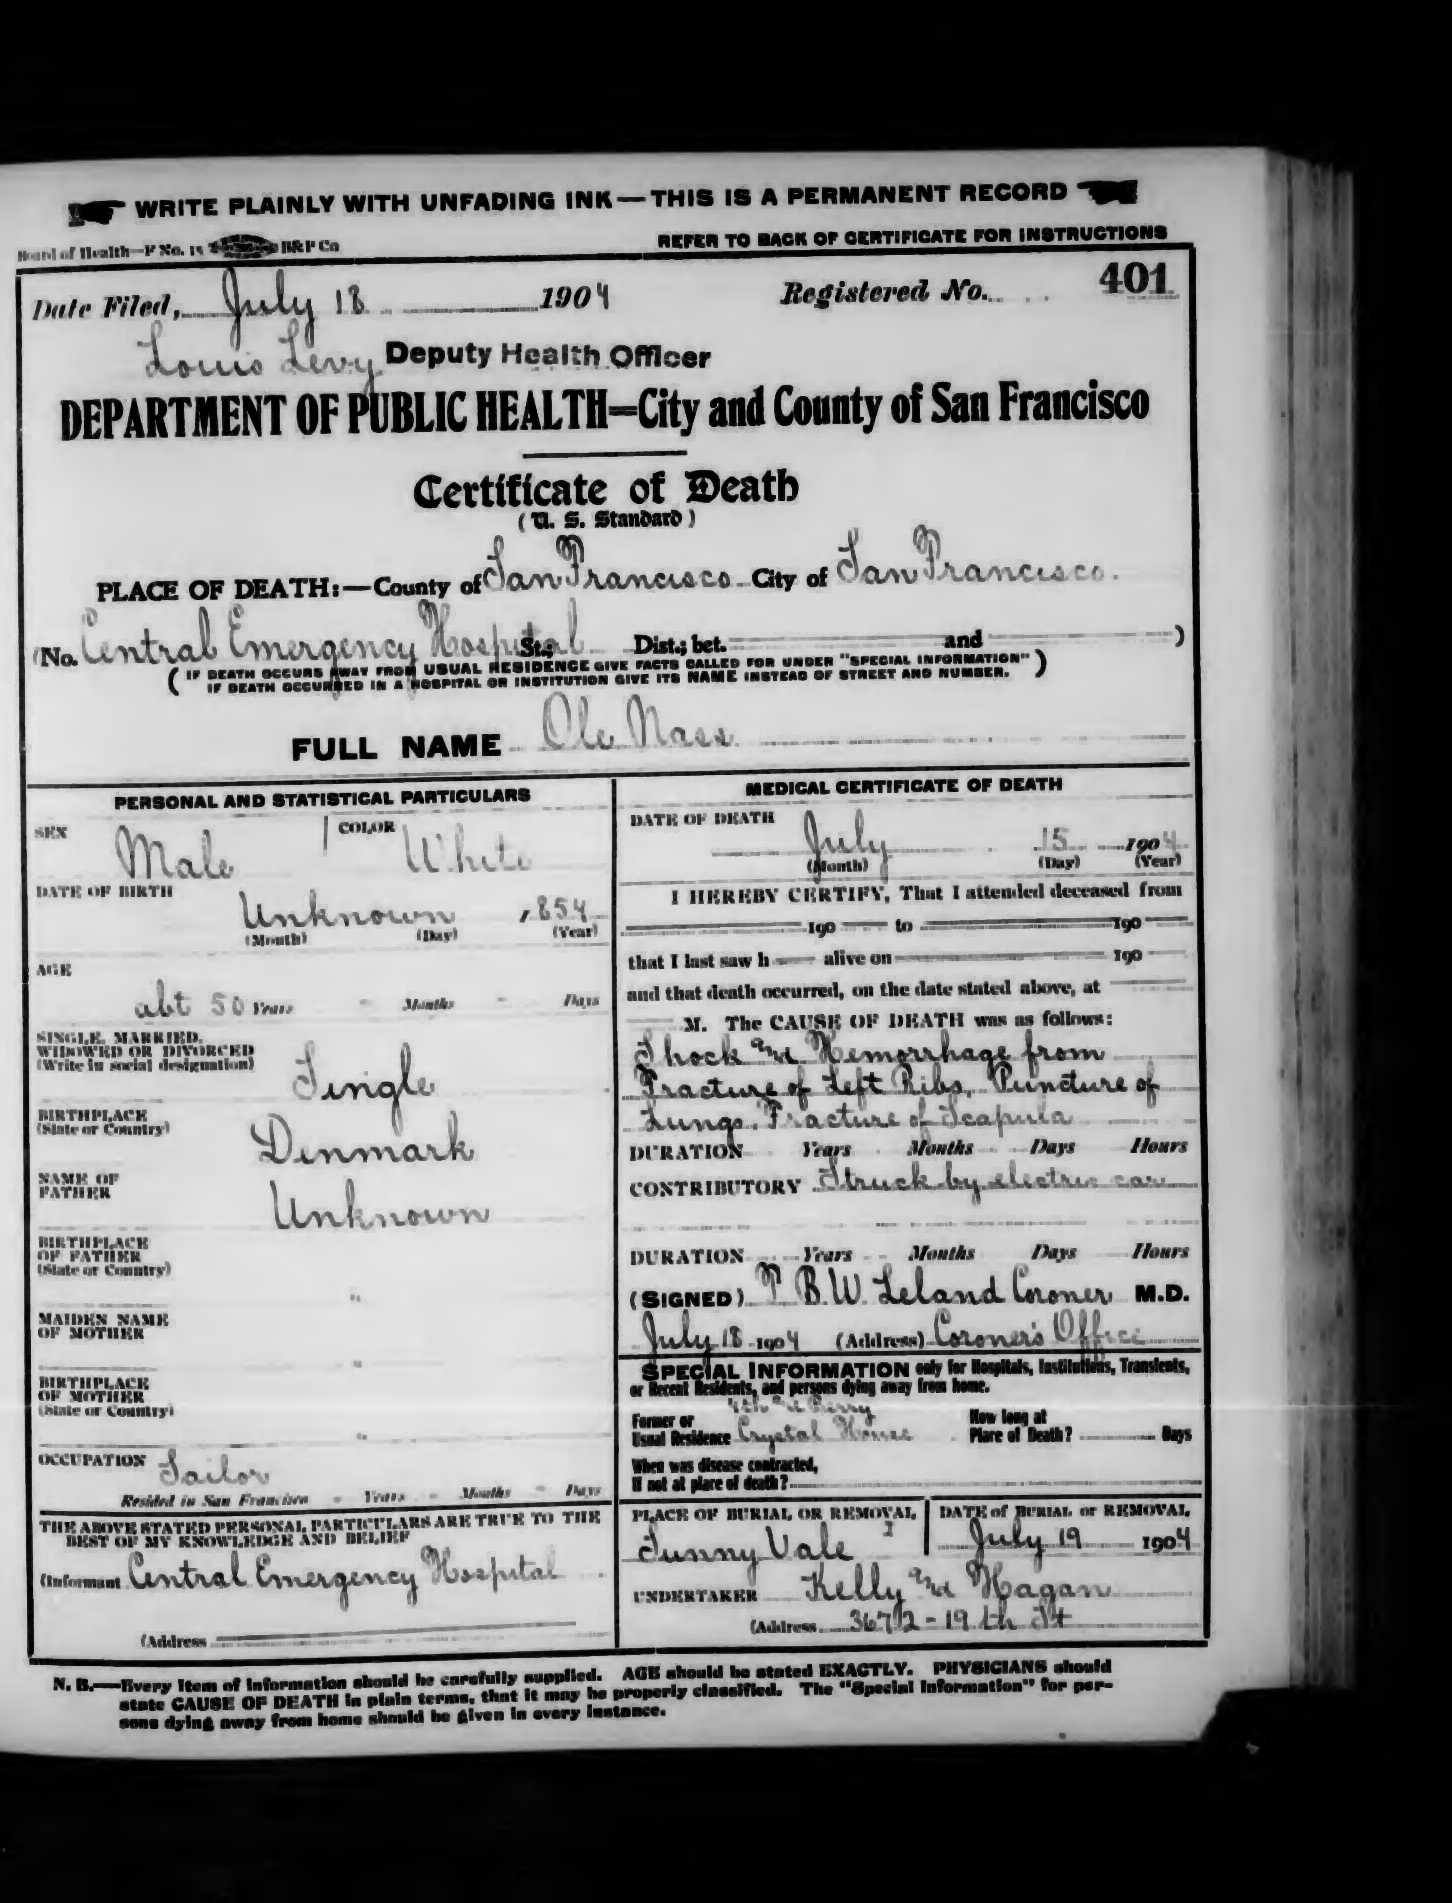 WRITE PLAINLY WITH UNFADING INK—THIS IS A PERMANENT RECORD
Board of Health—F No. 15 B&P Co
REFER TO BACK OF CERTIFICATE FOR INSTRUCTIONS
Date Filed, July 18 1904 Registered No. 401
Louis Levy Deputy Health Officer
DEPARTMENT OF PUBLIC HEALTH=City and County of San Francisco
Certificate of Death
(U. S. Standard)
PLACE OF DEATH:—County of San Francisco City of San Francisco.
(No. Central Emergency Hospital St.; Dist.; bet. and )
( IF DEATH OCCURS AWAY FROM USUAL RESIDENCE GIVE FACTS CALLED FOR UNDER "SPECIAL INFORMATION" )
IF DEATH OCCURRED IN A HOSPITAL OR INSTITUTION GIVE ITS NAME INSTEAD OF STREET AND NUMBER.
FULL NAME Ole Nass
PERSONAL AND STATISTICAL PARTICULARS
SEX Male COLOR White
DATE OF BIRTH
Unknown 1854
(Month) (Day) (Year)
AGE
abt 50 Years - Months - Days
SINGLE, MARRIED,
WIDOWED OR DIVORCED
(Write in social designation) Single
BIRTHPLACE
(State or Country) Denmark
NAME OF
FATHER Unknown
BIRTHPLACE
OF FATHER
(State or Country) "
MAIDEN NAME
OF MOTHER "
BIRTHPLACE
OF MOTHER
(State or Country) "
OCCUPATION Sailor
Resided in San Francisco - Years - Months - Days
THE ABOVE STATED PERSONAL PARTICULARS ARE TRUE TO THE
BEST OF MY KNOWLEDGE AND BELIEF
(Informant Central Emergency Hospital
(Address
MEDICAL CERTIFICATE OF DEATH
DATE OF DEATH
July 15 1904
(Month) (Day) (Year)
I HEREBY CERTIFY, That I attended deceased from
190 to 190
that I last saw h alive on 190
and that death occurred, on the date stated above, at
M. The CAUSE OF DEATH was as follows:
Shock and Hemorrhage from
Fracture of Left Ribs, Puncture of
Lungs. Fracture of Scapula
DURATION Years Months Days Hours
CONTRIBUTORY Struck by electric car
DURATION Years Months Days Hours
(SIGNED) T. B. W. Leland Coroner M.D.
July 18 1904 (Address) Coroner's Office
SPECIAL INFORMATION only for Hospitals, Institutions, Transients,
or Recent Residents, and persons dying away from home.
4th and Perry
Former or
Usual Residence Crystal House
How long at
Place of Death? Days
When was disease contracted,
If not at place of death?
PLACE OF BURIAL OR REMOVAL
Sunny Vale
DATE of BURIAL or REMOVAL
July 19 1904
UNDERTAKER Kelly and Hagan
(Address 3672-19th St
N. B.—Every item of information should be carefully supplied. AGE should be stated EXACTLY. PHYSICIANS should
state CAUSE OF DEATH in plain terms, that it may be properly classified. The "Special Information" for per-
sons dying away from home should be given in every instance.